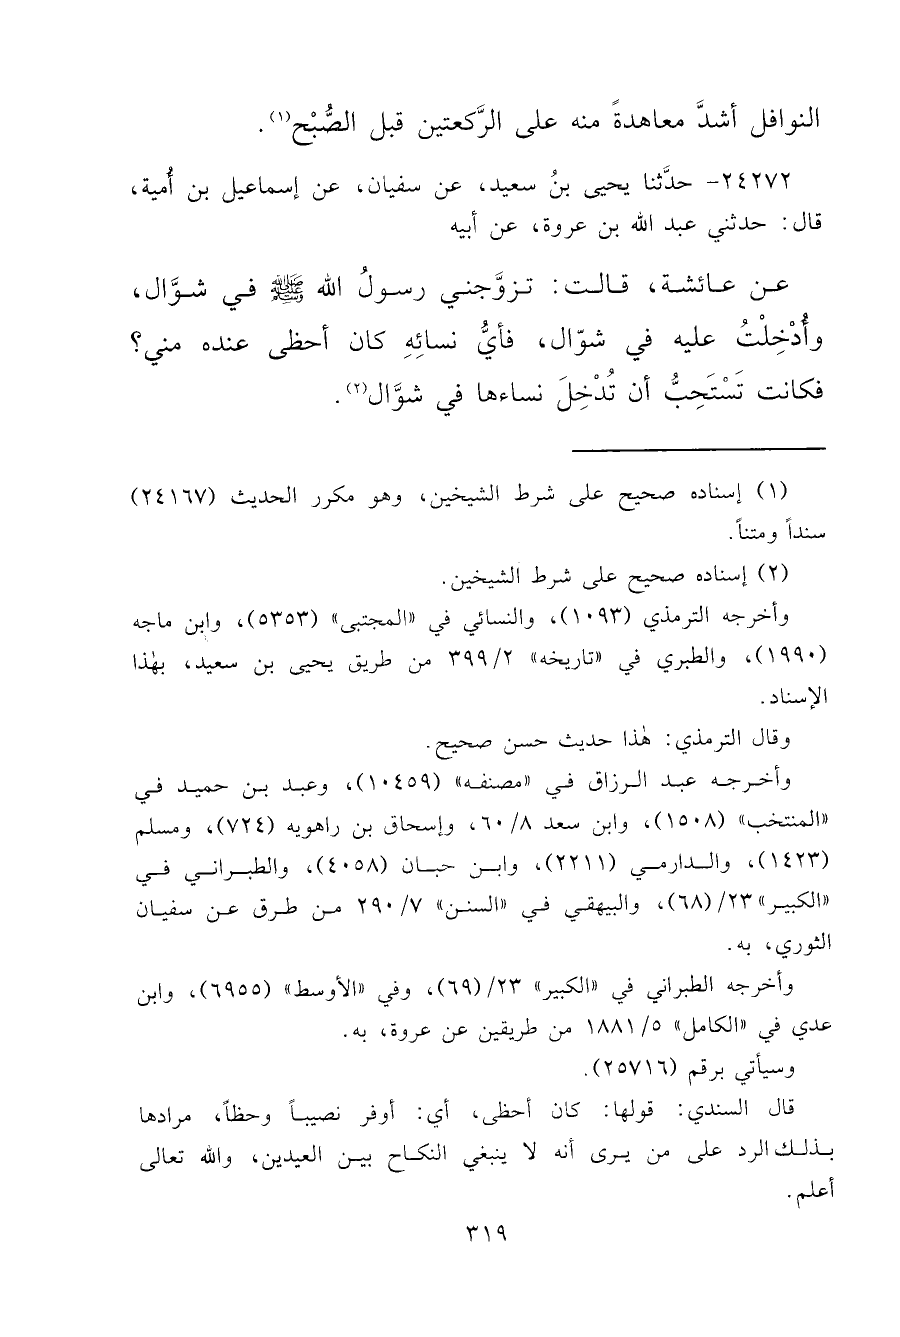 النوافل أشدَّ معاهدةً منه على الرَّكعتين قبل الصُّبْح(١).
٢٤٢٧٢- حدَّثنا يحيى بنُ سعيد، عن سفيان، عن إسماعيل بن أُمية،
قال: حدثني عبد الله بن عروة، عن أبيه
عن عائشة، قالت: تزوَّجني رسولُ الله ﷺ في شوَّال،
وأُدْخِلْتُ عليه في شوّال، فأيُّ نسائِهِ كان أحظى عنده مني؟
فكانت تَسْتَحِبُّ أن تُدْخِلَ نساءها في شوَّال(٢).
(١) إسناده صحيح على شرط الشيخين، وهو مكرر الحديث (٢٤١٦٧)
سنداً ومتناً.
(٢) إسناده صحيح على شرط الشيخين.
وأخرجه الترمذي (١٠٩٣)، والنسائي في «المجتبى» (٥٣٥٣)، وابن ماجه
(١٩٩٠)، والطبري في «تاريخه» ٣٩٩/٢ من طريق يحيى بن سعيد، بهٰذا
الإسناد.
وقال الترمذي: هٰذا حديث حسن صحيح.
وأخرجه عبد الرزاق في «مصنفه» (١٠٤٥٩)، وعبد بن حميد في
«المنتخب» (١٥٠٨)، وابن سعد ٦٠/٨، وإسحاق بن راهويه (٧٢٤)، ومسلم
(١٤٢٣)، والدارمي (٢٢١١)، وابن حبان (٤٠٥٨)، والطبراني في
«الكبير» ٢٣/(٦٨)، والبيهقي في «السنن» ٢٩٠/٧ من طرق عن سفيان
الثوري، به.
وأخرجه الطبراني في «الكبير» ٢٣/(٦٩)، وفي «الأوسط» (٦٩٥٥)، وابن
عدي في «الكامل» ١٨٨١/٥ من طريقين عن عروة، به.
وسيأتي برقم (٢٥٧١٦).
قال السندي: قولها: كان أحظى، أي: أوفر نصيباً وحظاً، مرادها
بذلك الرد على من يرى أنه لا ينبغي النكاح بين العيدين، والله تعالى
أعلم.
٣١٩